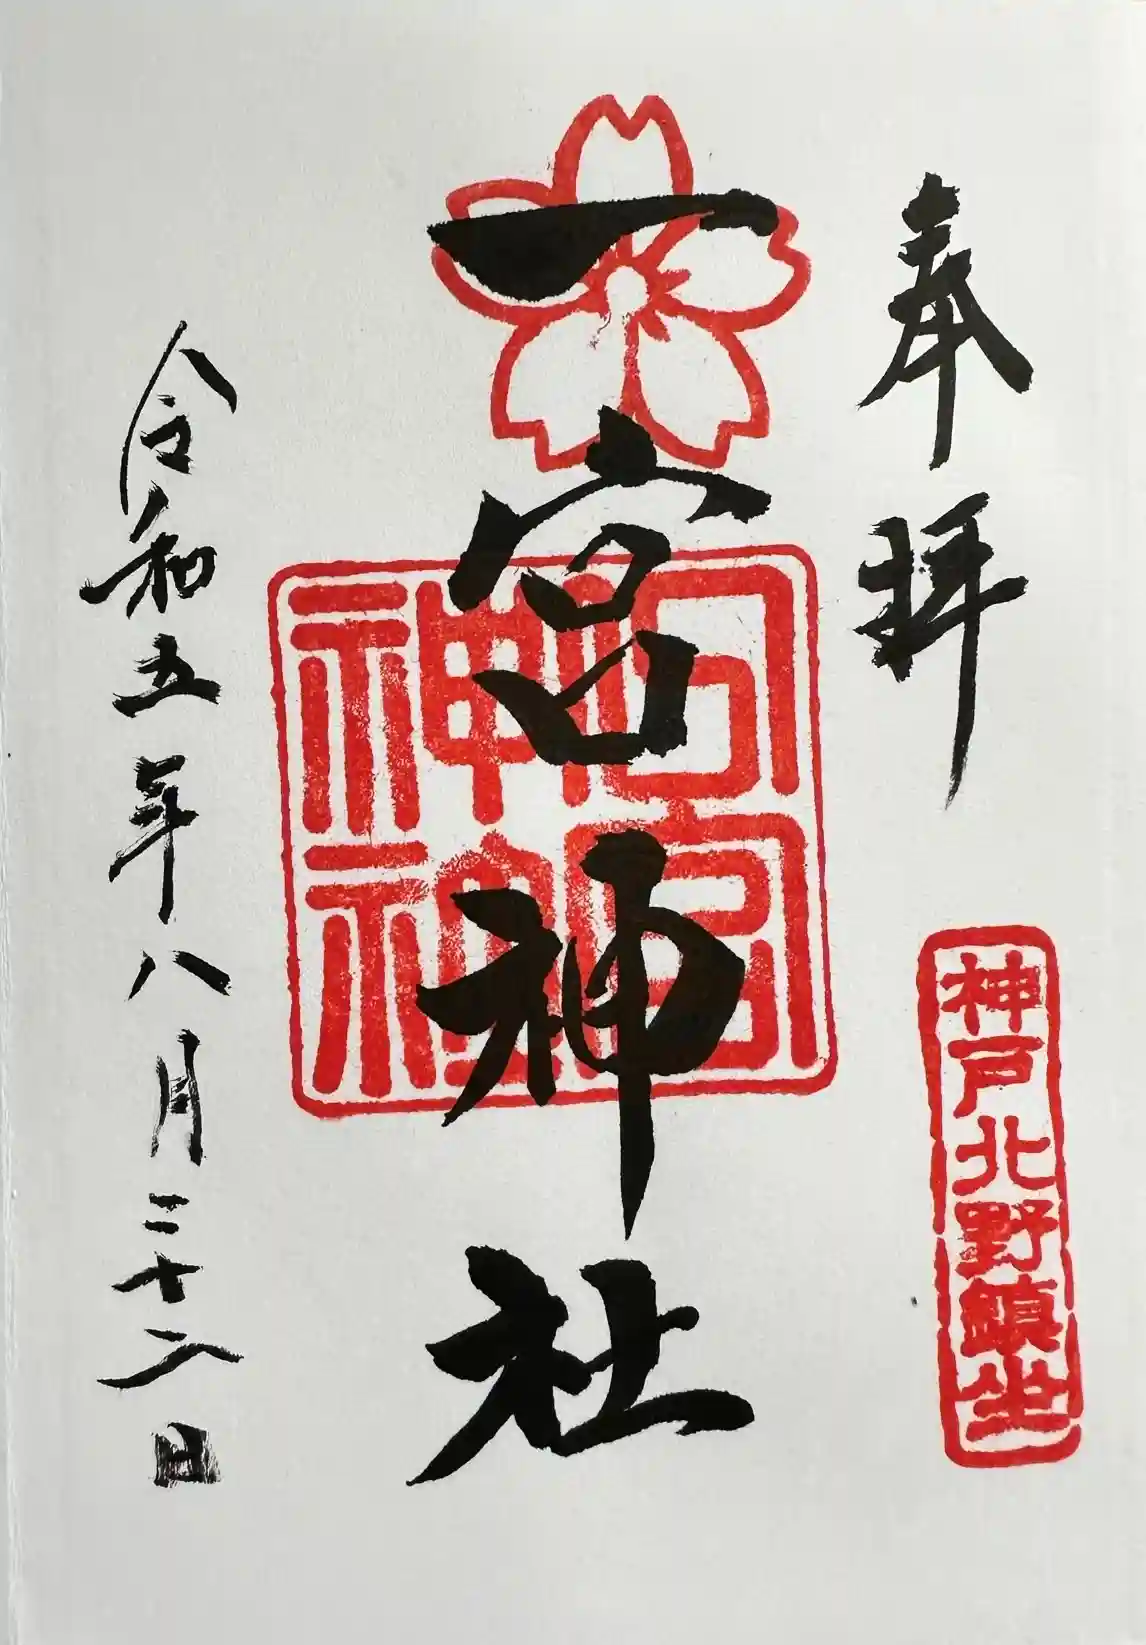 奉拝
神戸北野鎮坐
一宮神社
令和五年八月二十二日